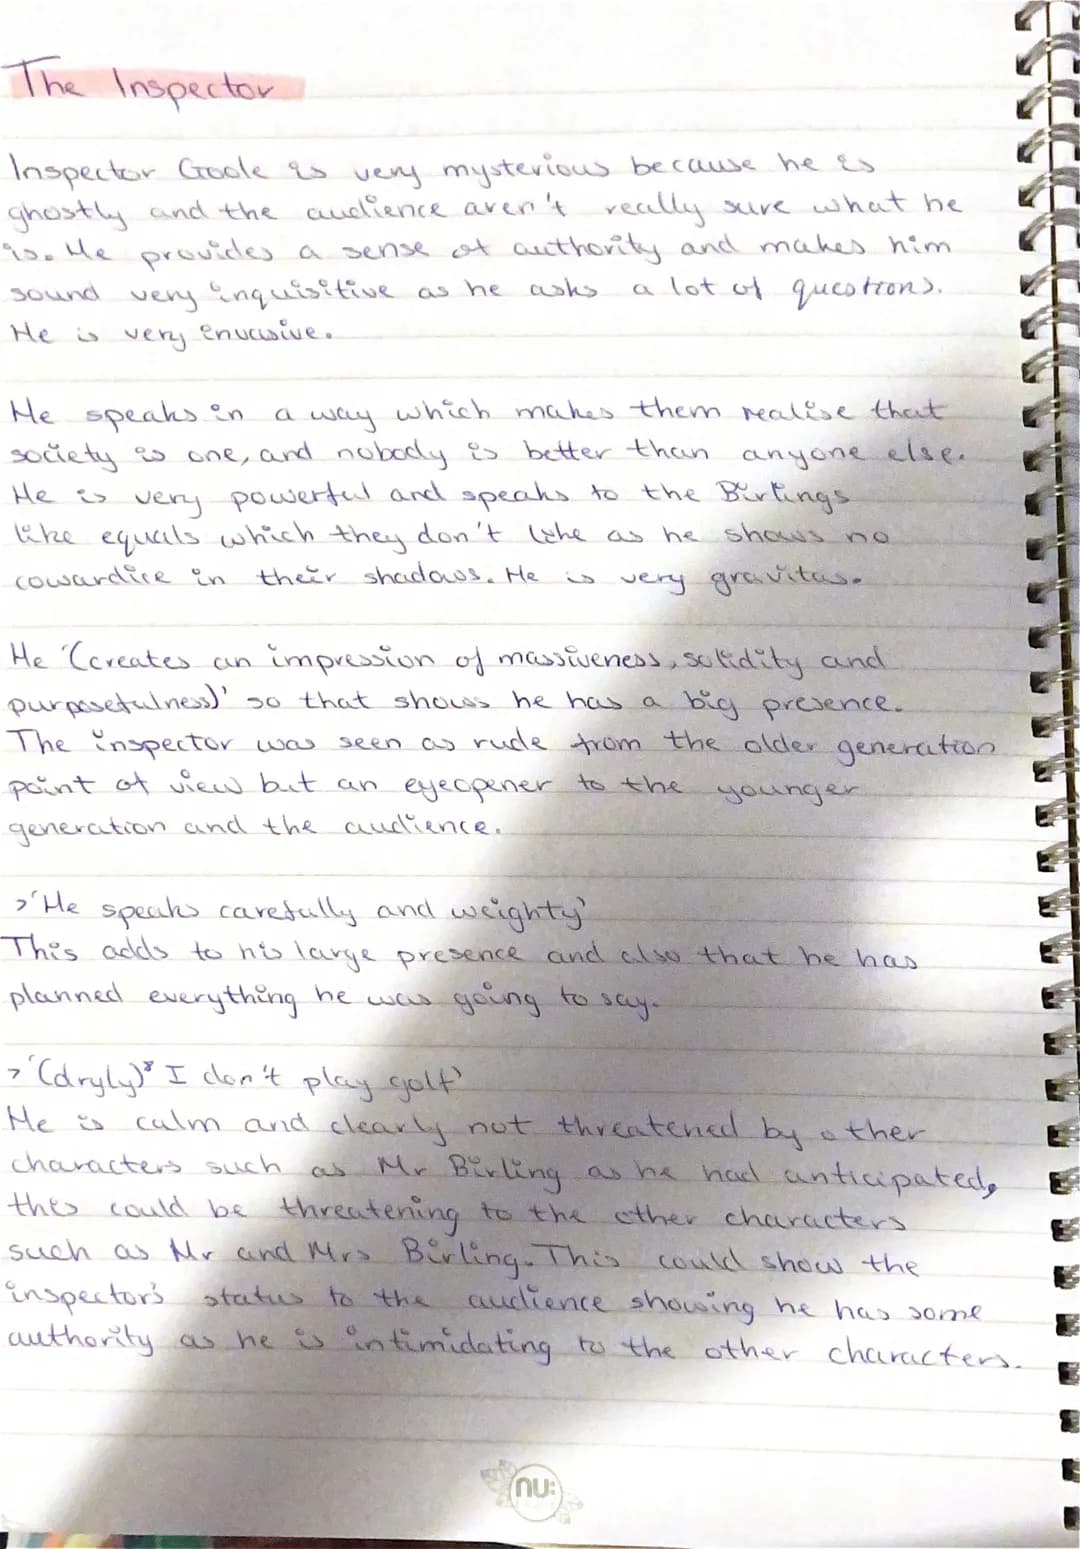 The Inspector
Inspector Goole is very mysterious because he is
ghostly and the audience aren't really sure what he
is. He provides a sense of authority and makes him
sound very inquisitive as he asks a lot of questions.
He is very envasive.
He speaks in a way which makes them realise that
society is one, and nobody is better than anyone else.
He is very powerful and speaks to the Birlings
like equals which they don't like as he shows no
cowardice in their shadows. He is very gravitas.
He '(creates an impression of massiveness, solidity and
purposefulness)' so that shows he has a big presence.
The inspector was seen as rude from the older generation
point of view but an eyeopener to the younger
generation and the audience.
>'He speaks carefully and weighty'
This adds to his large presence and also that he has
planned everything he was going to say.
>'(dryly)* I don't play golf'
He is calm and clearly not threatened by other
characters such as Mr Birling as he had anticipated,
this could be threatening to the other characters
such as Mr and Mrs Birling. This could show the
inspector's status to the audience showing he has some
authority as he is intimidating to the other characters.
nu: